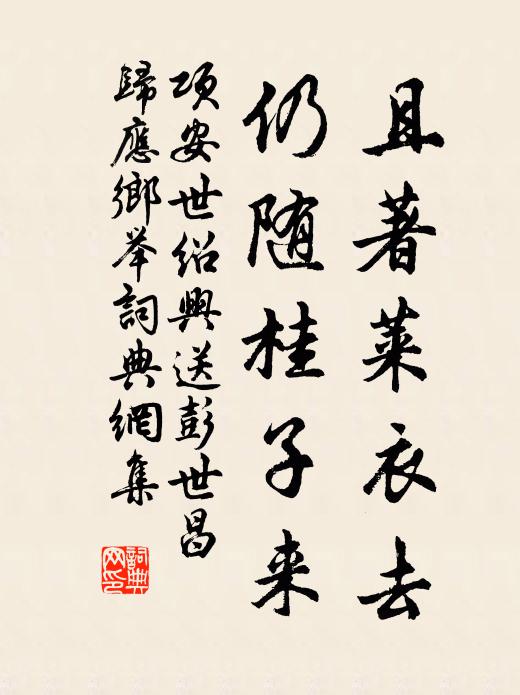 且著莱衣去
仍随桂子来
项安世绍興送彭世昌
歸應鄉举詞典網集
詞典网印